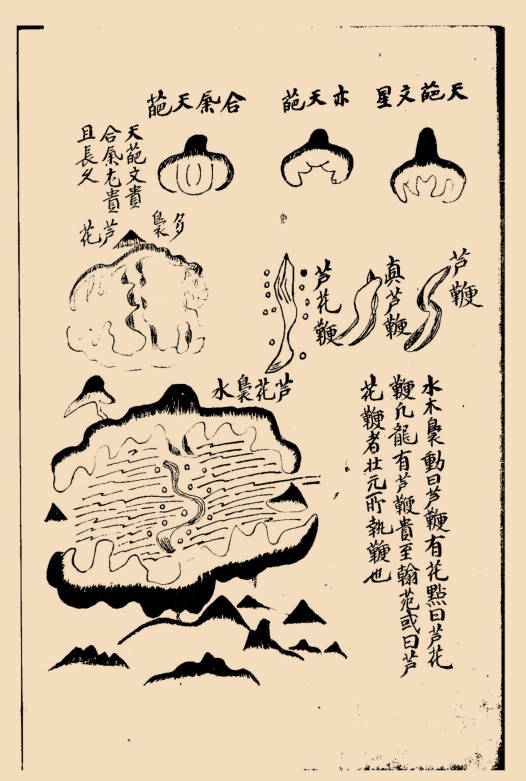 天葩文星
亦天葩
合氣天葩
天葩文貴
合氣尤貴
且長久
芦鞭
真芦鞭
芦花鞭
多裊芦花
水木裊動曰芦鞭有花點曰芦花
鞭凢龍有芦鞭貴至翰苑或曰芦
花鞭者壮元所執鞭也
芦花裊水